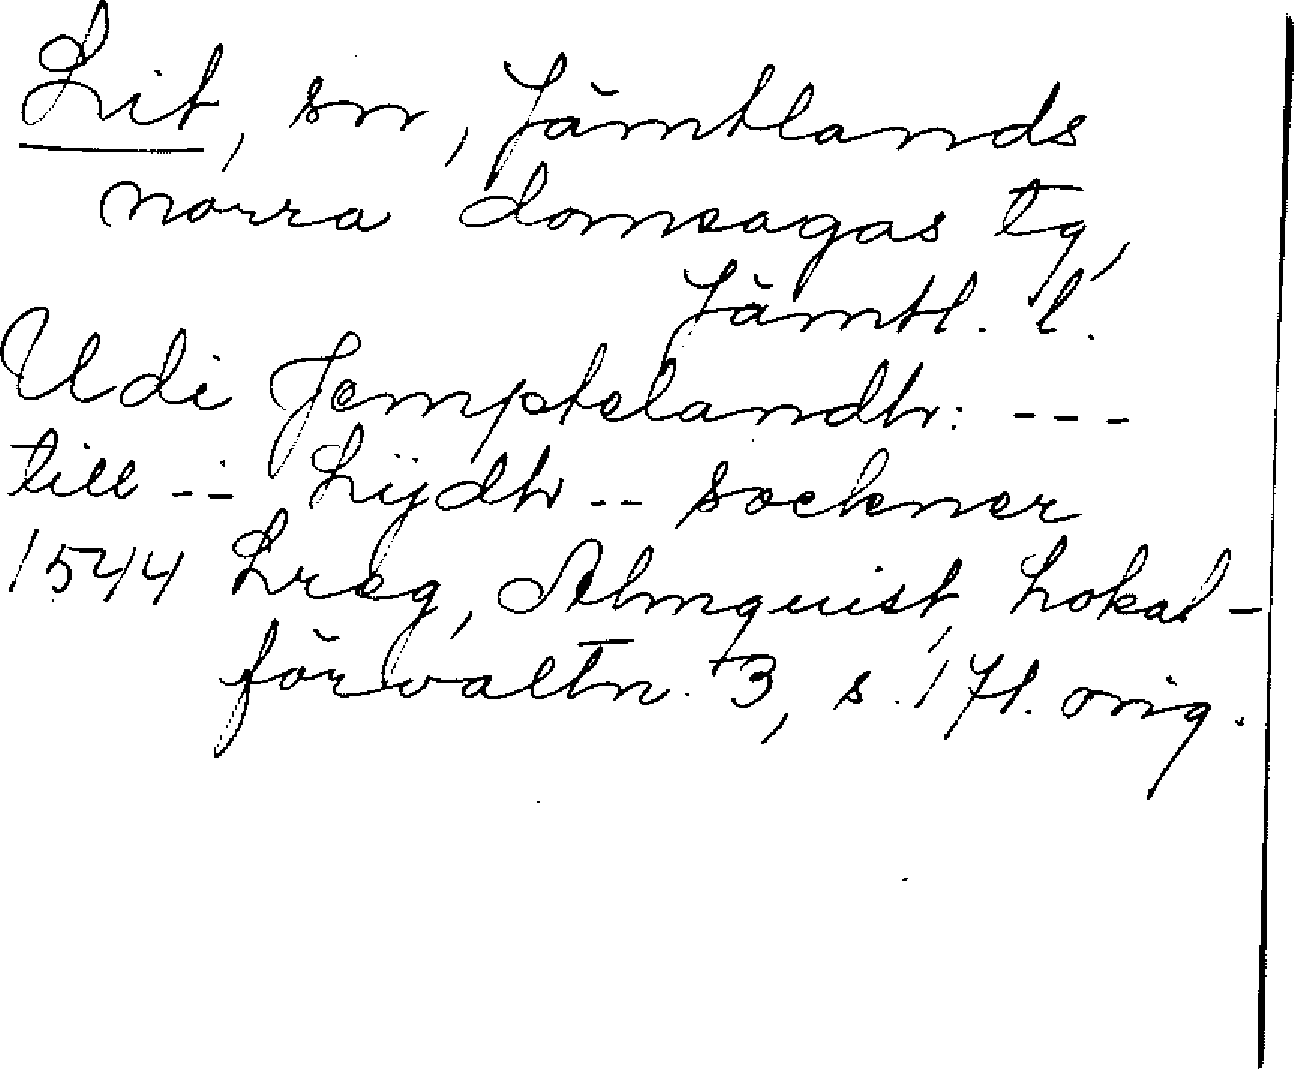 Lit, sn, Jämtlands
norra domsagas tg,
Jämtl. l.
Udi Jemptelandh: ---
till --- Lijdh -- sockner
1544 Lreg, Almquist, Lokal-
förvaltn. 3, s. 171. orig.